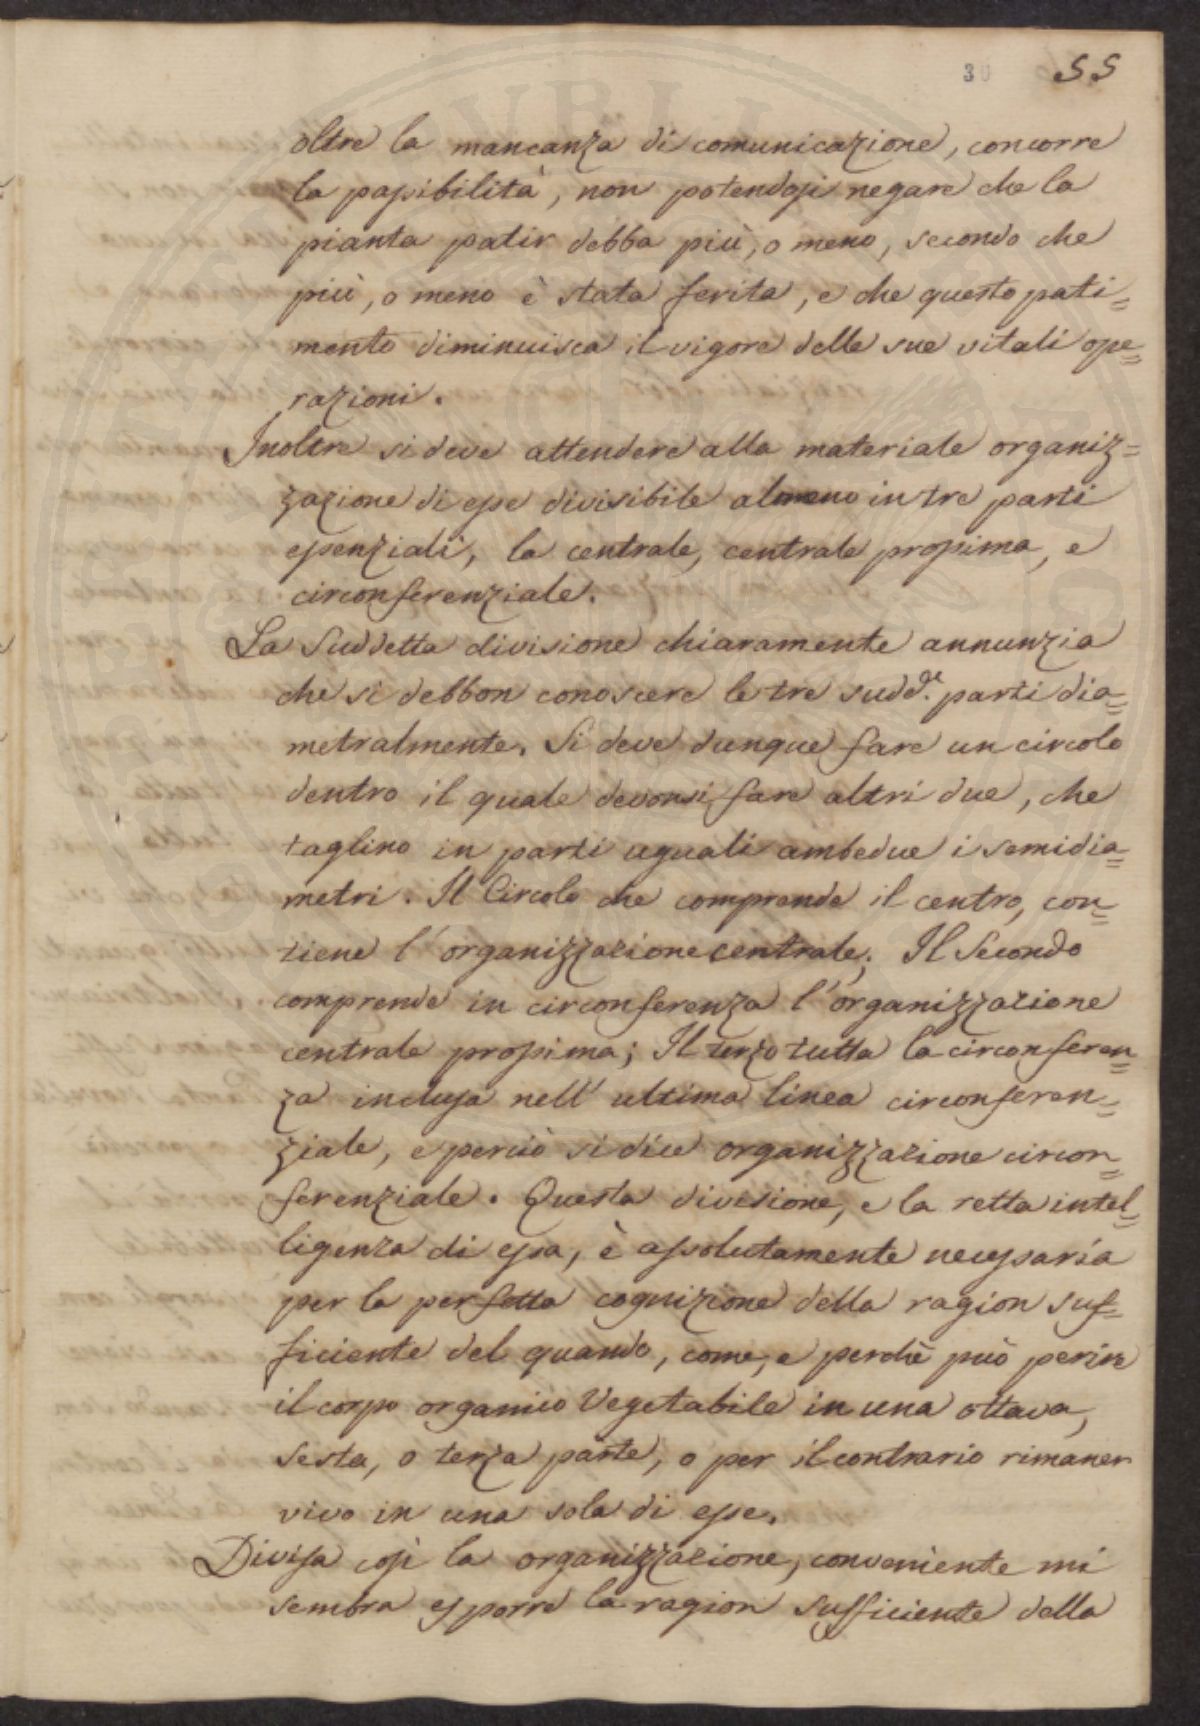 30 55
oltre la mancanza di comunicazione, concorre
la passibilità, non potendosi negare che la
pianta patir debba più, o meno, secondo che
più, o meno è stata ferita, e che questo pati=
mento diminuisca il vigore delle sue vitali ope=
razioni.
Inoltre si deve attendere alla materiale organiz=
zazione di esse divisibile almeno in tre parti
essenziali, la centrale, centrale prossima, e
circonferenziale.
La Suddetta divisione chiaramente annunzia
che si debbon conoscere le tre sudd.e parti dia=
metralmente. Si deve dunque fare un circolo
dentro il quale devonsi fare altri due, che
taglino in parti uguali ambedue i semidia=
metri. Il Circolo che comprende il centro, con=
tiene l'organizzazione centrale; Il Secondo
comprende in circonferenza l'organizzazione
centrale prossima; Il terzo tutta la circonferen=
za inclusa nell'ultima linea circonferen=
ziale, e perciò si dice organizzazione circon=
ferenziale. Questa divisione, e la retta intel=
ligenza di essa, è assolutamente necessaria
per la perfetta cognizione della ragion suf=
ficiente del quando, come, e perchè può perire
il corpo organico Vegetabile in una ottava,
sesta, o terza parte, o per il contrario rimaner
vivo in una sola di esse.
Divisa così la organizzazione, conveniente mi
sembra esporre la ragion sufficiente della